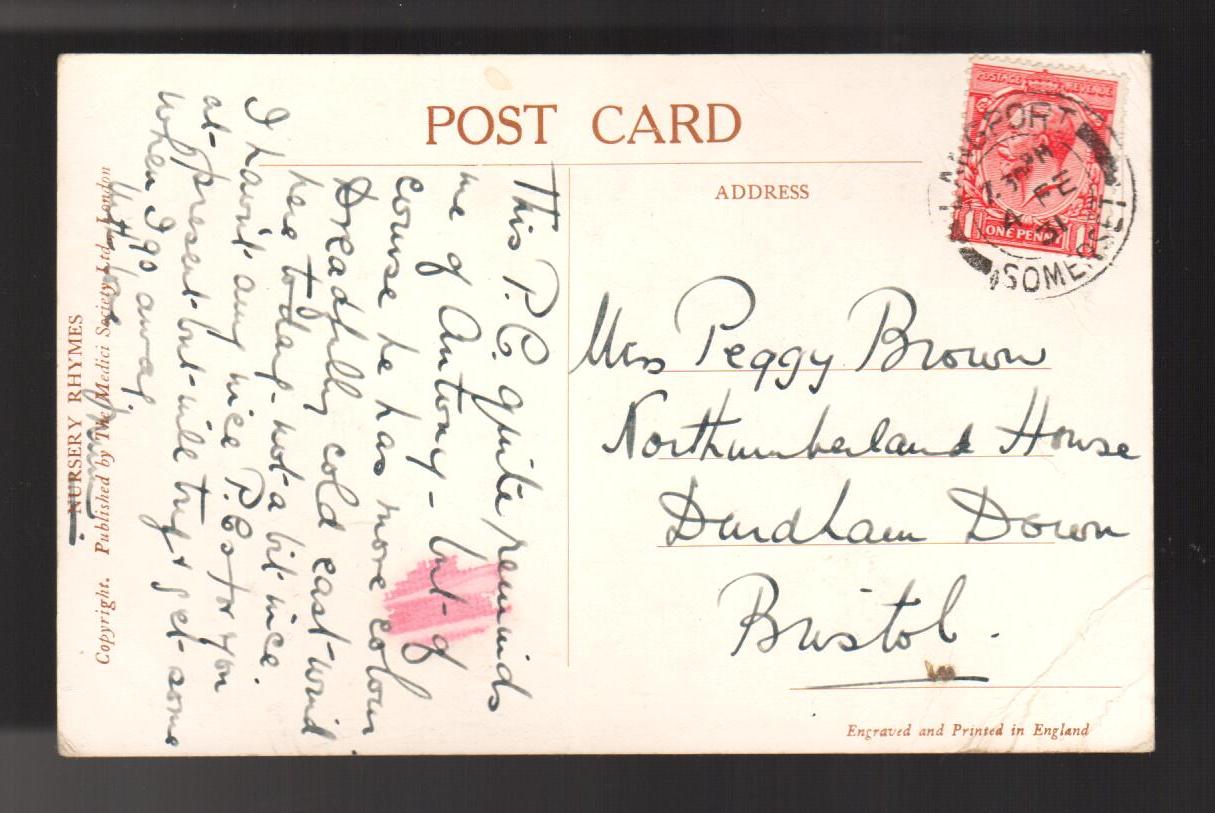 POST CARD
ADDRESS
POSTAGE REVENUE
ONE PENNY
LANGPORT
7.30 PM
4 FE
31
SOMERSET
Miss Peggy Brown
Northumberland House
Durdham Down
Bristol.
Engraved and Printed in England
This P.C. quite reminds
me of Antony - but of
course he has more colour.
Dreadfully cold east wind
here to-day - not a bit nice.
I havn't any nice P.Cs for you
at present but will try & get some
when I go away.
with love
NURSERY RHYMES
Copyright. Published by The Medici Society Ltd., London